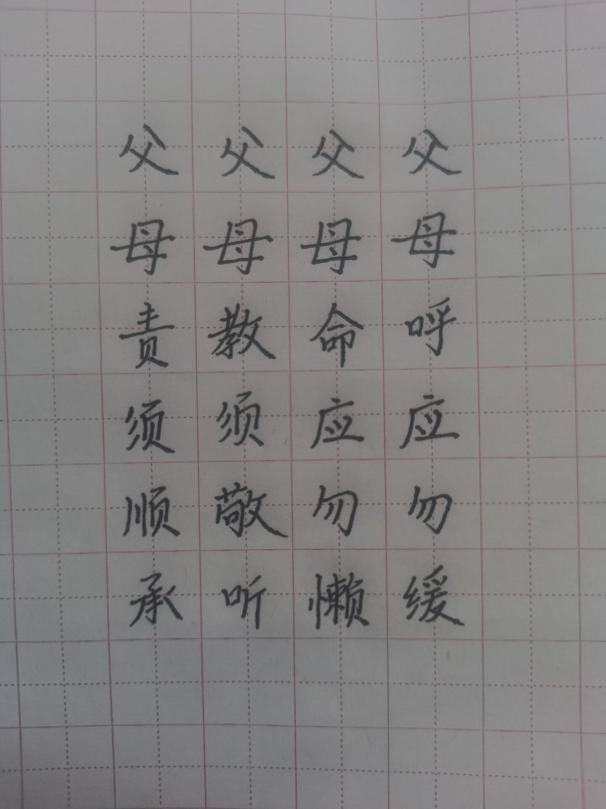 父母呼应勿缓
父母命应勿懒
父母教须敬听
父母责须顺承